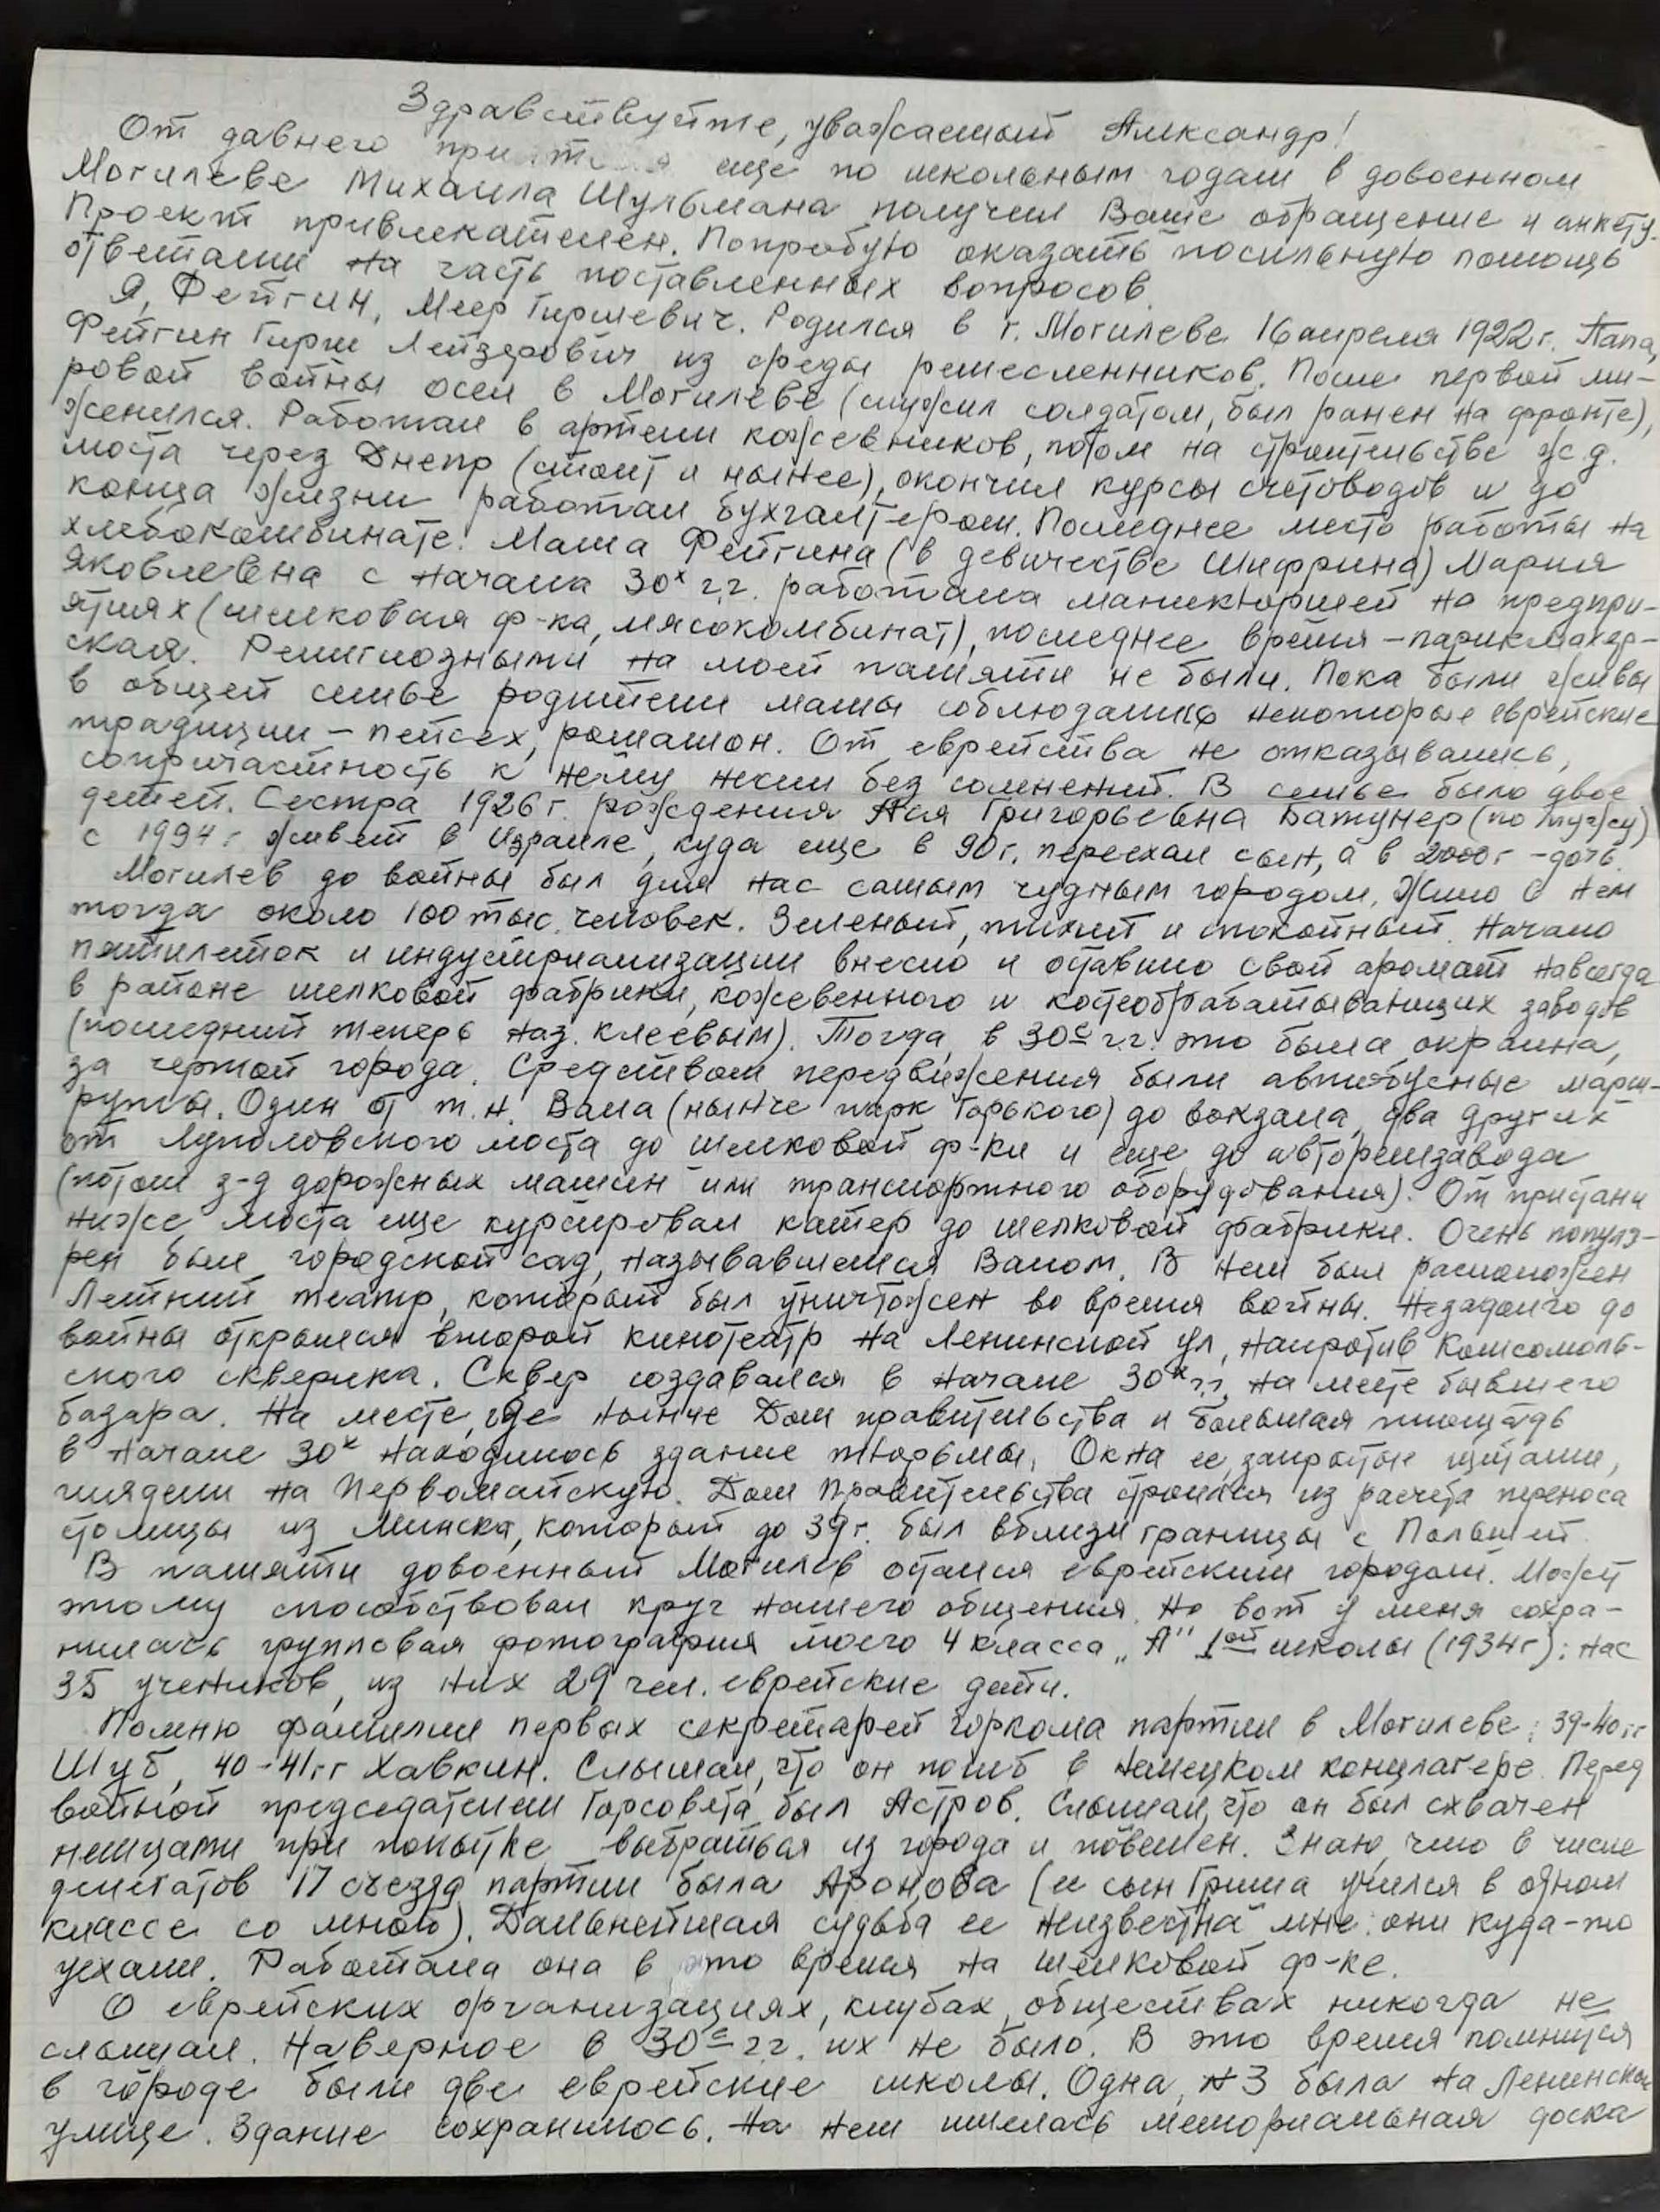 Здравствуйте, уважаемый Александр!
От давнего приятеля еще по школьным годам в довоенном
Могилеве Михаила Шульмана получил Ваше обращение и анкету.
Проект привлекателен. Попробую оказать посильную помощь
ответами на часть поставленных вопросов.
Я, Фейгин, Меер Гиршевич. Родился в г. Могилеве 16 апреля 1922 г. Папа,
Фейгин Гирш Лейзерович из среды ремесленников. После первой ми-
ровой войны осел в Могилеве (служил солдатом, был ранен на фронте),
женился. Работал в артели кожевников, потом на строительстве ж.д.
моста через Днепр (стоит и нынче), окончил курсы счетоводов и до
конца жизни работал бухгалтером. Последнее место работы на
хлебокомбинате. Мама Фейгина (в девичестве Шифрина) Мария
Яковлевна с начала 30х г.г. работала маникюршей на предпри-
ятиях (шелковая ф-ка, мясокомбинат), последнее время - парикмахер-
ская. Религиозными на моей памяти не были. Пока были живы
в общей семье родители мамы соблюдались некоторые еврейские
традиции - пейсех, рошашон. От еврейства не отказывались,
сопричастность к нему несли без сомнений. В семье было двое
детей. Сестра 1926 г. рождения Ася Григорьевна Батунер (по мужу)
с 1994 г живет в Израиле, куда еще в 90 г. переехал сын, а в 2000 г - дочь.
Могилев до войны был для нас самым чудным городом. Жило в нем
тогда около 100 тыс. человек. Зеленый, тихий и спокойный. Начало
пятилеток и индустриализации внесло и оставило свой аромат навсегда
в районе шелковой фабрики, кожевенного и костеобрабатывающих заводов
(последний теперь наз. клеевым). Тогда, в 30е г.г. это была окраина,
за чертой города. Средством передвижения были автобусные марш-
руты. Один от т.н. Вала (нынче парк Горького) до вокзала, два других
от Луполовского моста до шелковой ф-ки и еще до авторемзавода
(потом з-д дорожных машин или транспортного оборудования). От пристани
ниже моста еще курсировал катер до шелковой фабрики. Очень популя-
рен был городской сад, называвшемся Валом. В нем был расположен
Летний театр, который был уничтожен во время войны. Незадолго до
войны открылся второй кинотеатр на Ленинской ул, напротив Комсомоль-
ского скверика. Сквер создавался в начале 30х г.г. на месте бывшего
базара. На месте, где нынче Дом правительства и большая площадь
в начале 30х находилось здание тюрьмы. Окна ее, закрытые щитами,
глядели на Первомайскую. Дом Правительства строился из расчета переноса
столицы из Минска, который до 39 г. был вблизи границы с Польшей.
В памяти довоенный Могилев остался еврейским городом. Может
этому способствовал круг нашего общения. Но вот у меня сохра-
нилась групповая фотография моего 4 класса „А" 1ой школы (1934 г): нас
35 учеников, из них 29 чел. еврейские дети.
Помню фамилии первых секретарей горкома партии в Могилеве: 39-40 гг
Шуб, 40-41 гг Хавкин. Слышал, что он погиб в немецком концлагере. Перед
войной председателем Горсовета был Астров. Слышал, что он был схвачен
немцами при попытке выбраться из города и повешен. Знаю, что в числе
делегатов 17 съезда партии была Аронова (ее сын Гриша учился в одном
классе со мною). Дальнейшая судьба ее неизвестна мне: они куда-то
уехали. Работала она в это время на шелковой ф-ке.
О еврейских организациях, клубах, обществах никогда не
слышал. Наверное в 30е г.г. их не было. В это время помнится
в городе были две еврейские школы. Одна, N3 была на Ленинской
улице. Здание сохранилось. На нем имелась мемориальная доска